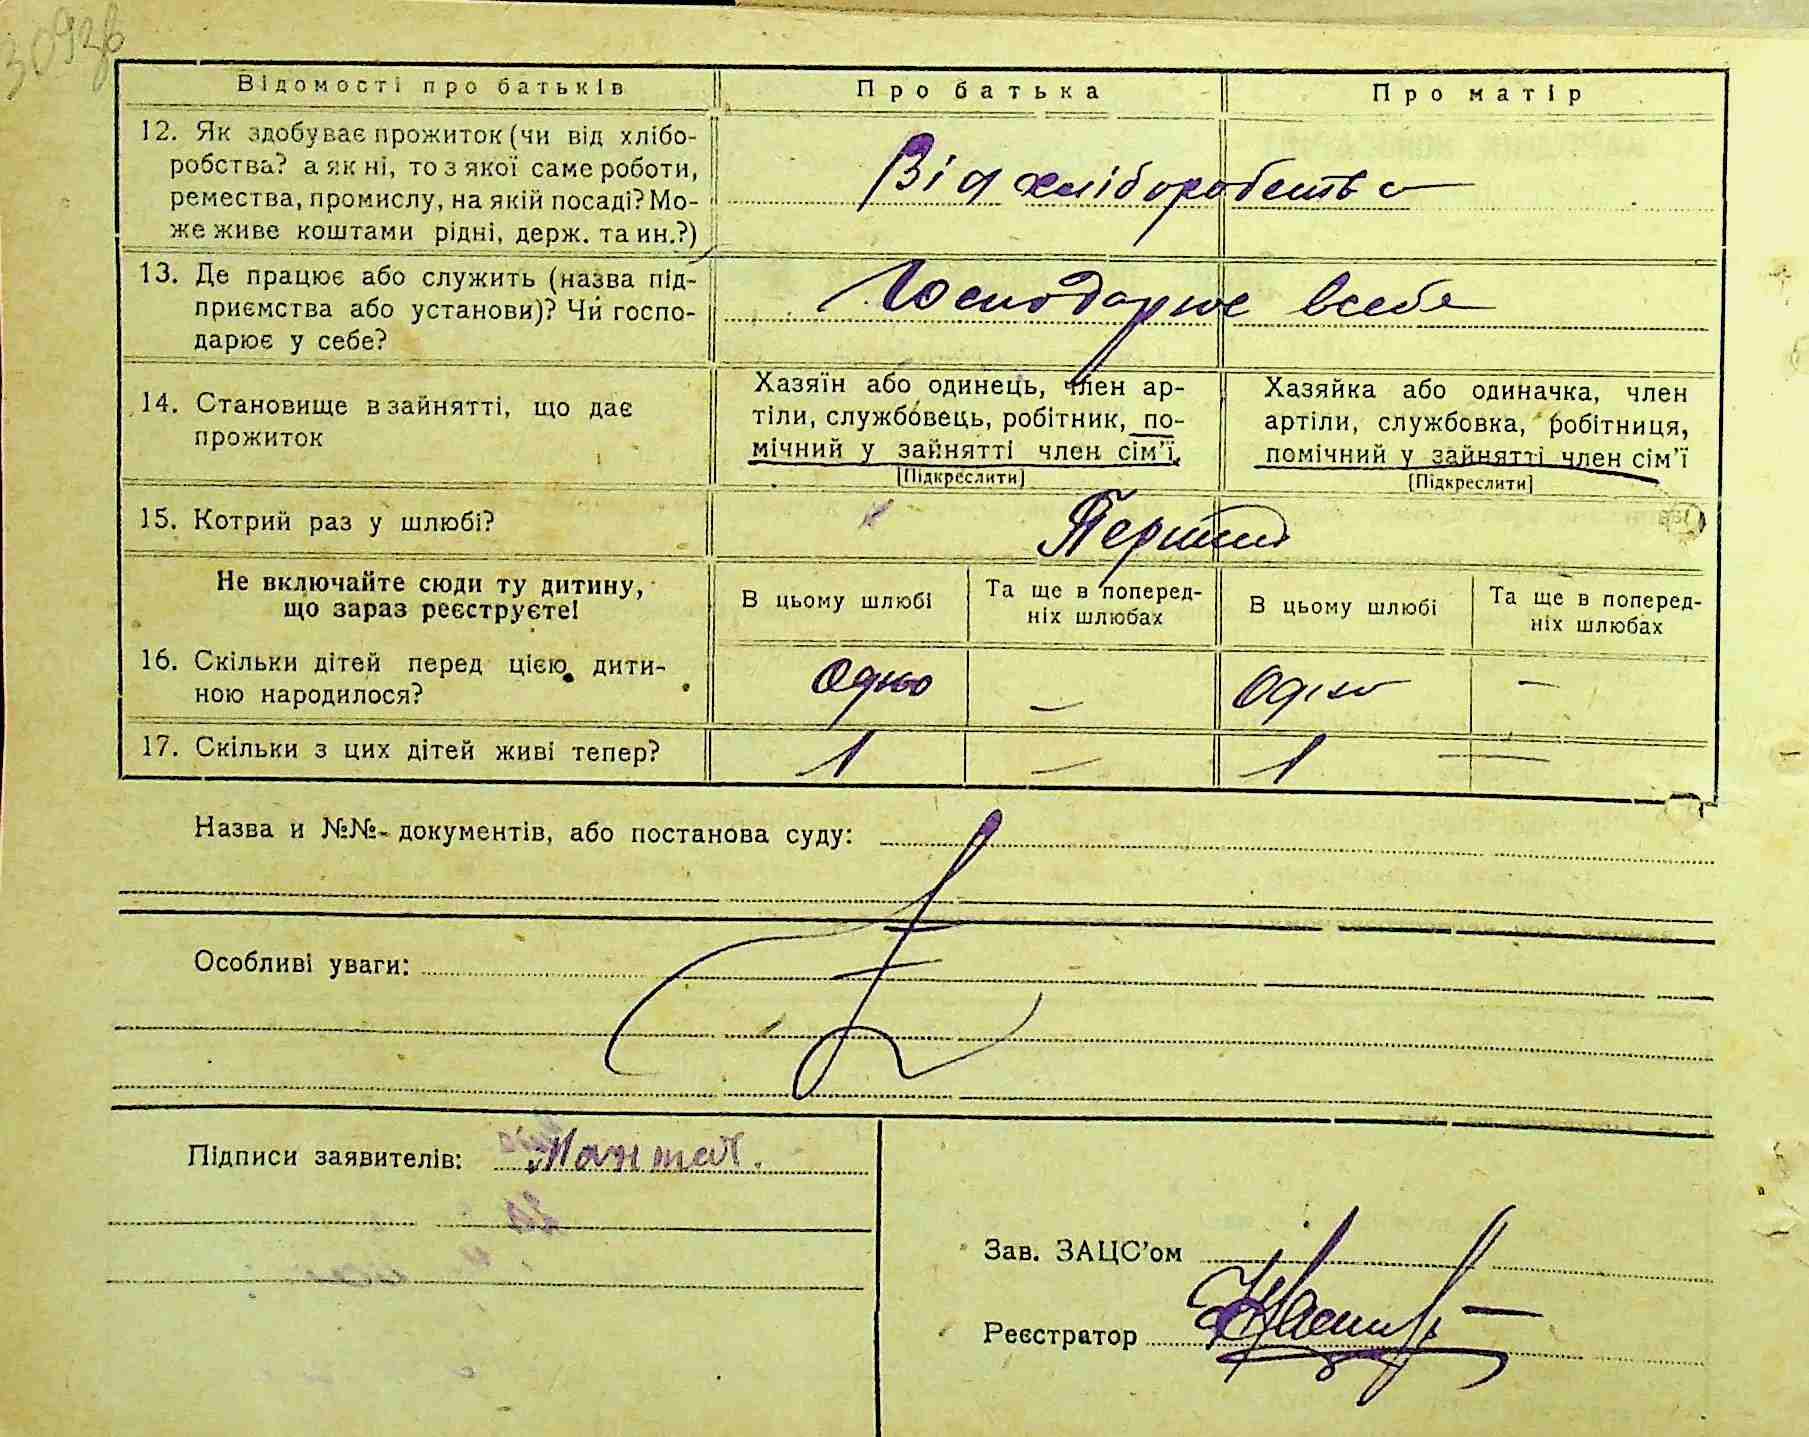 309зв
Відомості про батьків
Про батька
Про матір
12. Як здобуває прожиток (чи від хлібо-
робства? а як ні, то з якої саме роботи,
ремества, промислу, на якій посаді? Мо-
же живе коштами рідні, держ. та ин.?)
Від хліборобства
13. Де працює або служить (назва під-
приємства або установи)? Чи госпо-
дарює у себе?
Господарює всебе
14. Становище в зайнятті, що дає
прожиток
Хазяїн або одинець, член ар-
тіли, службовець, робітник, по-
мічний у зайнятті член сім'ї,
[Підкреслити]
Хазяйка або одиначка, член
артіли, службовка, робітниця,
помічний у зайнятті член сім'ї
[Підкреслити]
15. Котрий раз у шлюбі?
Перший
Не включайте сюди ту дитину,
що зараз реєструєте!
В цьому шлюбі
Та ще в поперед-
ніх шлюбах
В цьому шлюбі
Та ще в поперед-
ніх шлюбах
16. Скільки дітей перед цією дити-
ною народилося?
Одно
—
Одно
—
17. Скільки з цих дітей живі тепер?
1
—
1
—
Назва и №№ документів, або постанова суду:
Особливі уваги:
Підписи заявителів:
Зав. ЗАЦС'ом
Реєстратор